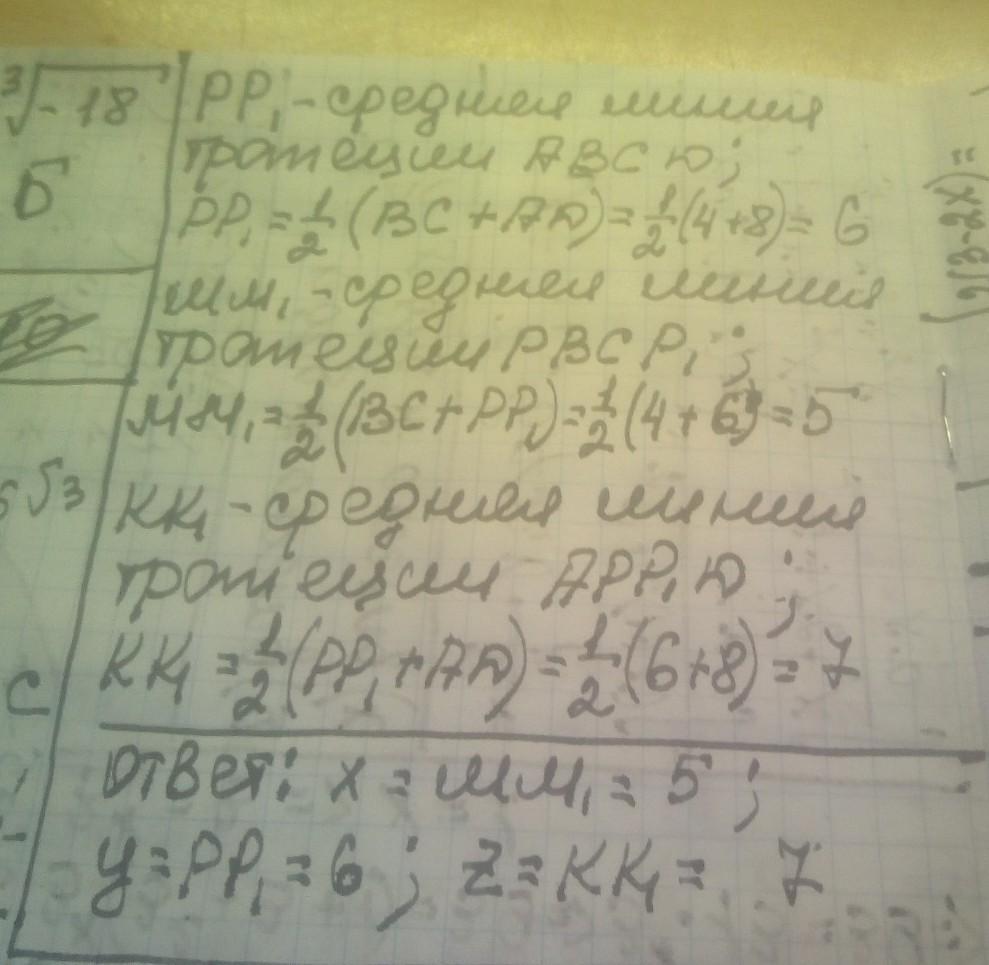 ∛-18
Б
5√3
С
PP₁ - средняя линия
трапеции ABCD;
PP₁ = 1/2 (BC + AD) = 1/2 (4+8) = 6
MM₁ - средняя линия
трапеции PBCP₁;
MM₁ = 1/2 (BC + PP₁) = 1/2 (4 + 6) = 5
KK₁ - средняя линия
трапеции APP₁D;
KK₁ = 1/2 (PP₁ + AD) = 1/2 (6+8) = 7
Ответ: x = MM₁ = 5;
y = PP₁ = 6; z = KK₁ = 7